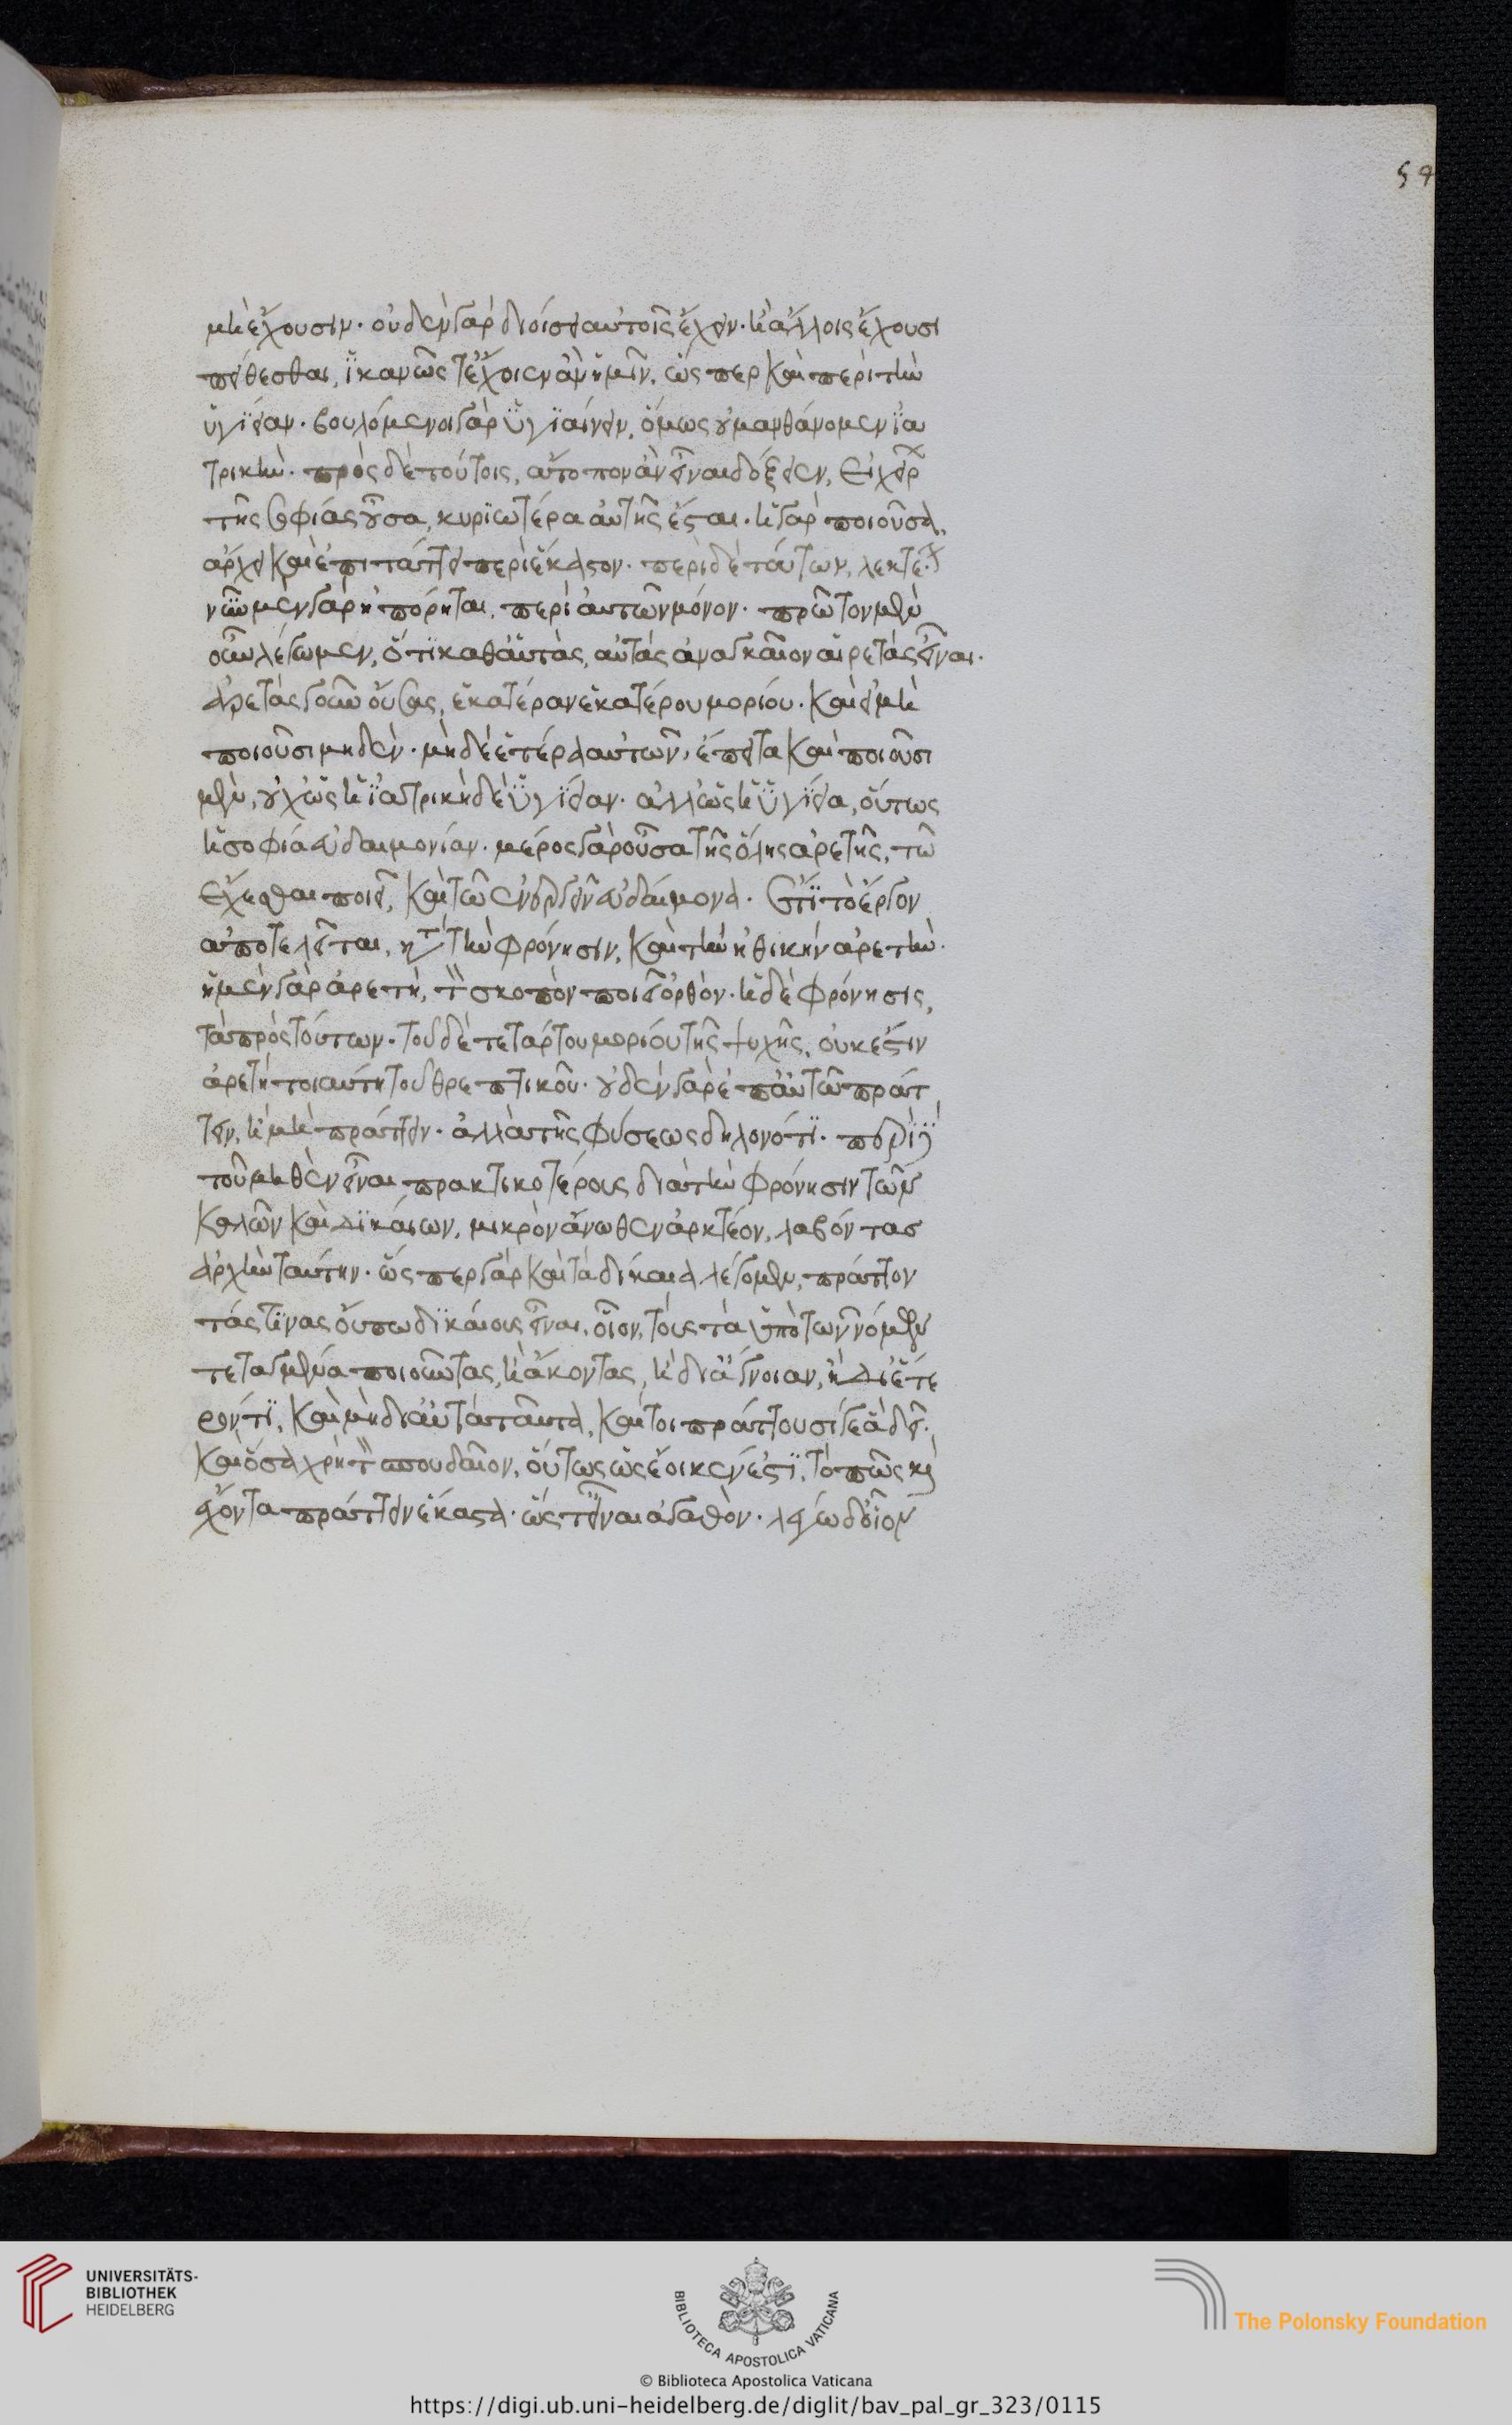 57
μὴ ἔχουσιν. οὐδὲν γὰρ διοίσει αὐτοὺς ἔχειν. ἢ ἄλλοις ἔχουσι
πείθεσθαι, ἱκανῶς τ' ἔχοι ἐν ἂν ἡμῖν, ὥσπερ καὶ περὶ τὴν
ὑγίειαν. βουλόμενοι γὰρ ὑγιαίνειν, ὅμως οὐ μανθάνομεν ἰα
τρικήν. πρὸς δὲ τούτοις, ἄτοπον ἂν εἶναι δόξειεν, εἰ χείρων
τῆς σοφίας οὖσα, κυριωτέρα αὐτῆς ἔσται. ἡ γὰρ ποιοῦσα,
ἄρχει καὶ ἐπιτάττει περὶ ἕκαστον. περὶ δὲ τούτων, λεκτέον
νῦν μὲν γὰρ ἠπόρηται, περὶ αὐτῶν μόνον. πρῶτον μὲν
οὖν λέγωμεν, ὅτι καθ' αὑτὰς, αὐτὰς ἀναγκαῖον αἱρετὰς εἶναι.
ἀρετάς γ' οὖν οὔσας, ἑκατέραν ἑκατέρου μορίου. καὶ εἰ μὴ
ποιοῦσι μηδὲν. μηδὲ ἑτέρα αὐτῶν, ἔπειτα καὶ ποιοῦσι
μὲν, οὐχ ὡς ἡ ἰατρικὴ δὲ ὑγίειαν. ἀλλ' ὡς ἡ ὑγίεια, οὕτως
ἡ σοφία εὐδαιμονίαν. μέρος γὰρ οὖσα τῆς ὅλης ἀρετῆς, τῷ
ἔχεσθαι ποιεῖ, καὶ τῷ ἐνεργεῖν εὐδαίμονα. ἔτι τὸ ἔργον
ἀποτελεῖται, κατὰ τὴν φρόνησιν, καὶ τὴν ἠθικὴν ἀρετήν.
ἡ μὲν γὰρ ἀρετὴ, τὸν σκοπὸν ποιεῖ ὀρθὸν. ἡ δὲ φρόνησις,
τὰ πρὸς τοῦτων. τοῦ δὲ τετάρτου μορίου τῆς ψυχῆς, οὐκ ἔστιν
ἀρετὴ τοιαύτη τοῦ θρεπτικοῦ. οὐδὲν γὰρ ἐπ' αὐτῷ πράτ
τειν, ἢ μὴ πράττειν. ἀλλὰ τῆς φύσεως δηλονότι. περὶ δὲ
τοῦ μηθὲν εἶναι πρακτικοτέρους διὰ τὴν φρόνησιν τῶν
καλῶν καὶ δικαίων, μικρὸν ἄνωθεν ἀρκτέον, λαβόντας
ἀρχὴν ταύτην. ὥσπερ γὰρ καὶ τὰ δίκαια λέγομεν, πράττον
τάς τινας οὔπω δικαίους εἶναι, οἷον, τοὺς τὰ ὑπὸ τῶν νόμων
τεταγμένα ποιοῦντας, ἢ ἄκοντας, ἢ δι' ἄγνοιαν, ἢ δι' ἕτε
ρόν τι, καὶ μὴ δι' αὐτὰ ταῦτα, καί τοι πράττουσί γε ἃ δεῖ.
καὶ ὅσα χρὴ τὸν σπουδαῖον, οὕτως ὡς ἔοικεν ἔστι, τὸ πῶς
ἔχοντα πράττειν ἕκαστα. ὥστ' εἶναι ἀγαθὸν. λέγω δ' οἷον
UNIVERSITÄTS-
BIBLIOTHEK
HEIDELBERG
BIBLIOTECA APOSTOLICA VATICANA
The Polonsky Foundation
© Biblioteca Apostolica Vaticana
https://digi.ub.uni-heidelberg.de/diglit/bav_pal_gr_323/0115